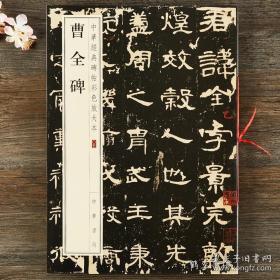 君諱全字景完敦
煌效穀人也其先
蓋周之胄武王秉
中華經典碑帖彩色放大本
曹全碑
中華書局